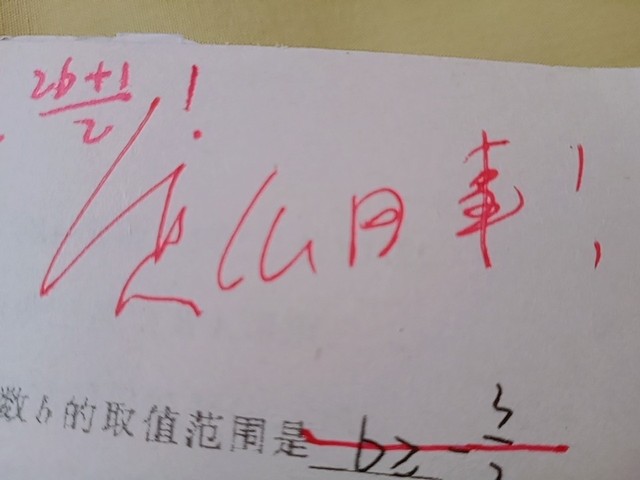 2b+1/2 !
怎么回事!
数b的取值范围是 b≥-3/2